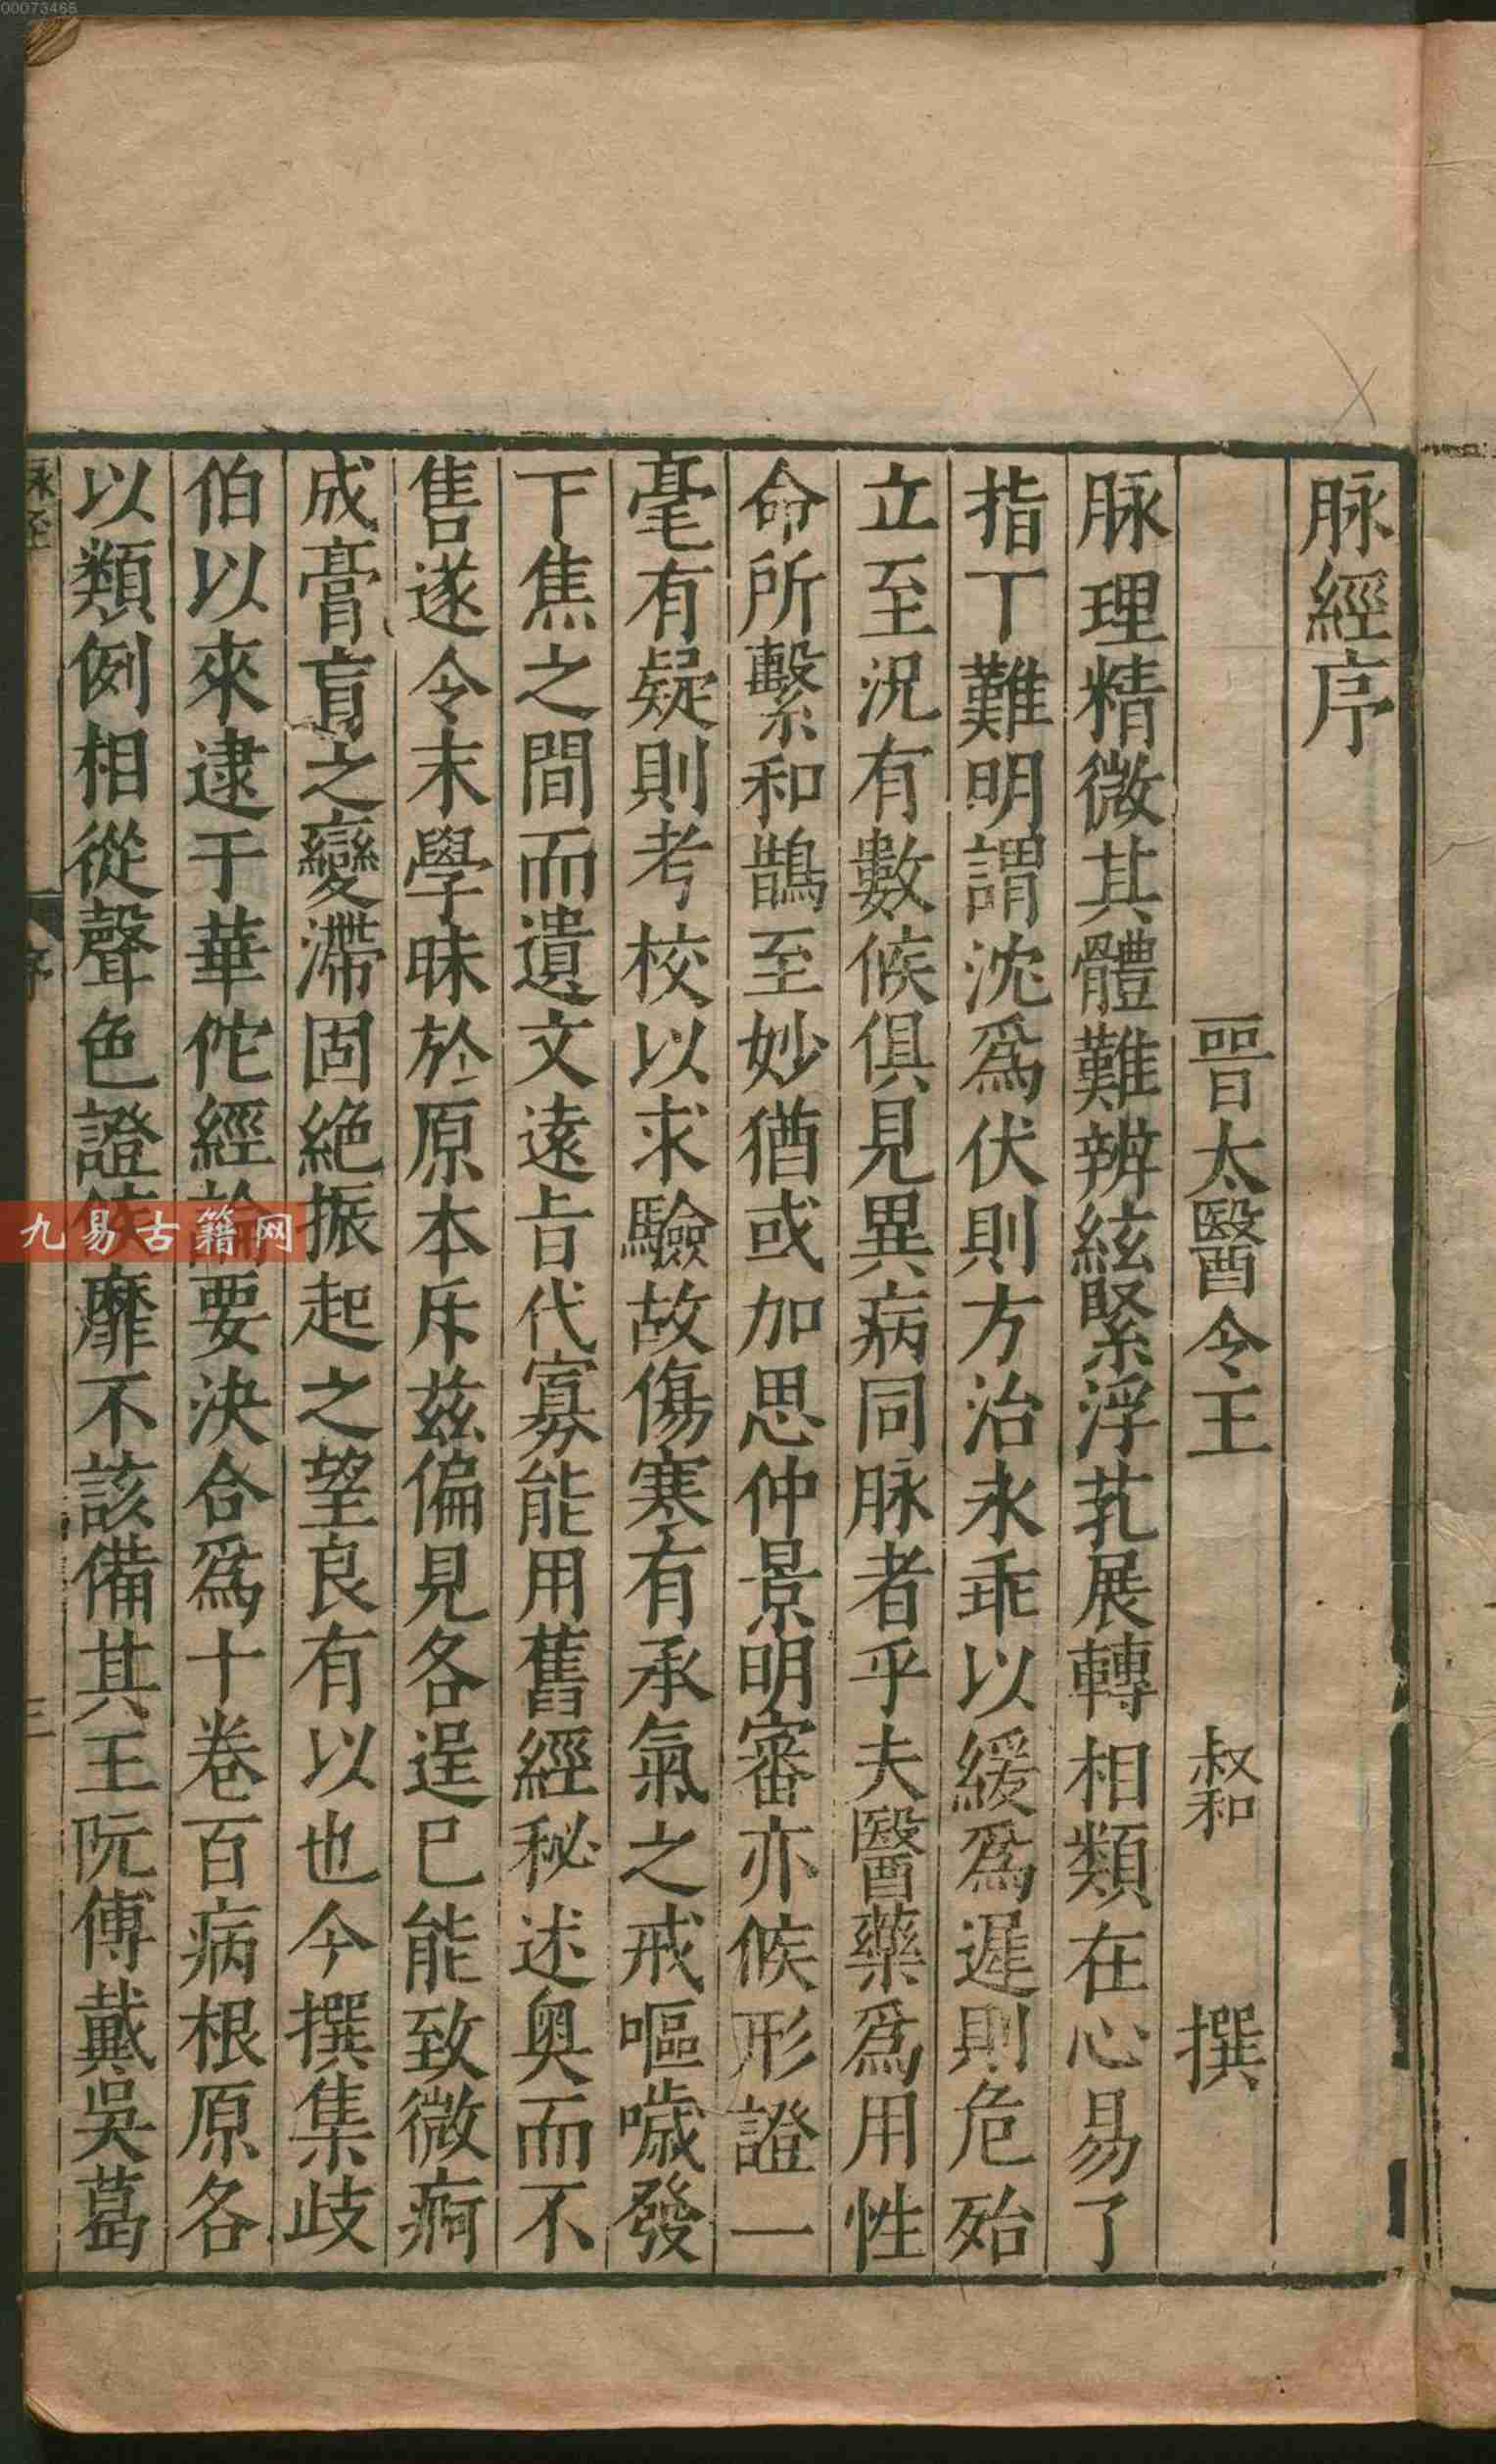 脉經序
晉太醫令王叔和撰
脉理精微其體難辨絃緊浮芤展轉相類在心易了
指下難明謂沈爲伏則方治永乖以緩爲遲則危殆
立至況有數候俱見異病同脉者乎夫醫藥爲用性
命所繫和鵲至妙猶或加思仲景明審亦候形證一
毫有疑則考校以求驗故傷寒有承氣之戒嘔噦發
下焦之間而遺文逺旨代寡能用舊經秘述奥而不
售遂令末學昧於原本斥茲偏見各逞已能致微痾
成膏肓之變滯固絶振起之望良有以也今撰集歧
伯以來逮于華佗經論要決合爲十卷百病根原各
以類例相從聲色證候靡不該備其王阮傅戴吳葛
脉經
序
三
九易古籍网
00073465